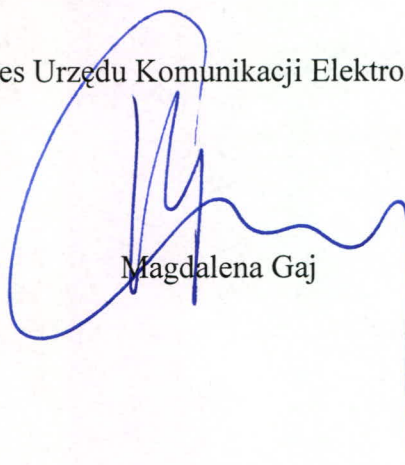 es Urzędu Komunikacji Elektro
Magdalena Gaj